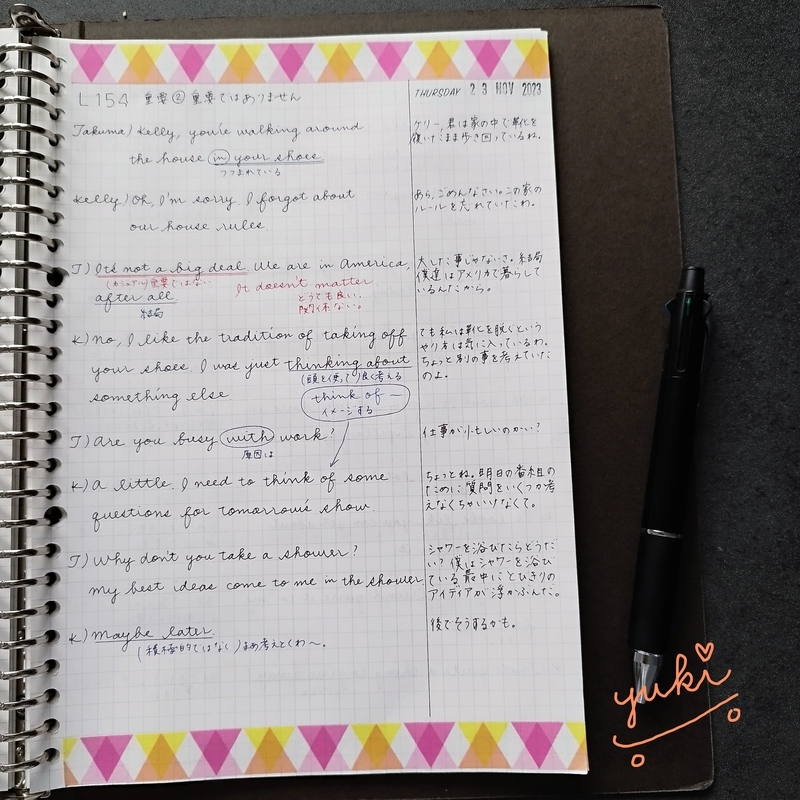 L154 重要② 重要ではありません
THURSDAY 23 NOV 2023
Takuma) Kelly, you're walking around
the house in your shoes
つつまれている
ケリー、君は家の中で靴を
履いたまま歩き回っているね。
Kelly) Oh, I'm sorry. I forgot about
our house rules.
あら、ごめんなさい。この家の
ルールを忘れていたわ。
T) It's not a big deal. We are in America,
(カジュアル)重要ではない
after all
結局
It doesn't matter
どうでも良い、
関係ない。
大した事じゃないさ。結局
僕達はアメリカで暮らして
いるんだから。
K) No, I like the tradition of taking off
your shoes. I was just thinking about
(頭を使って)良く考える
something else.
think of ～
イメージする
でも私は靴を脱ぐという
やり方は気に入っているわ。
ちょっと別の事を考えていた
のよ。
T) Are you busy with work?
原因は
仕事が忙しいのかい?
K) A little. I need to think of some
questions for tomorrow's show.
ちょっとね。明日の番組の
ために質問をいくつか考
えなくちゃいけなくて。
T) Why don't you take a shower?
my best ideas come to me in the shower.
シャワーを浴びたらどうだ
い?僕はシャワーを浴び
ている最中にとびきりの
アイディアが浮かぶんだ。
K) Maybe later.
(積極的ではなく)まあ考えとくわ～。
後でそうするかも。
yuki